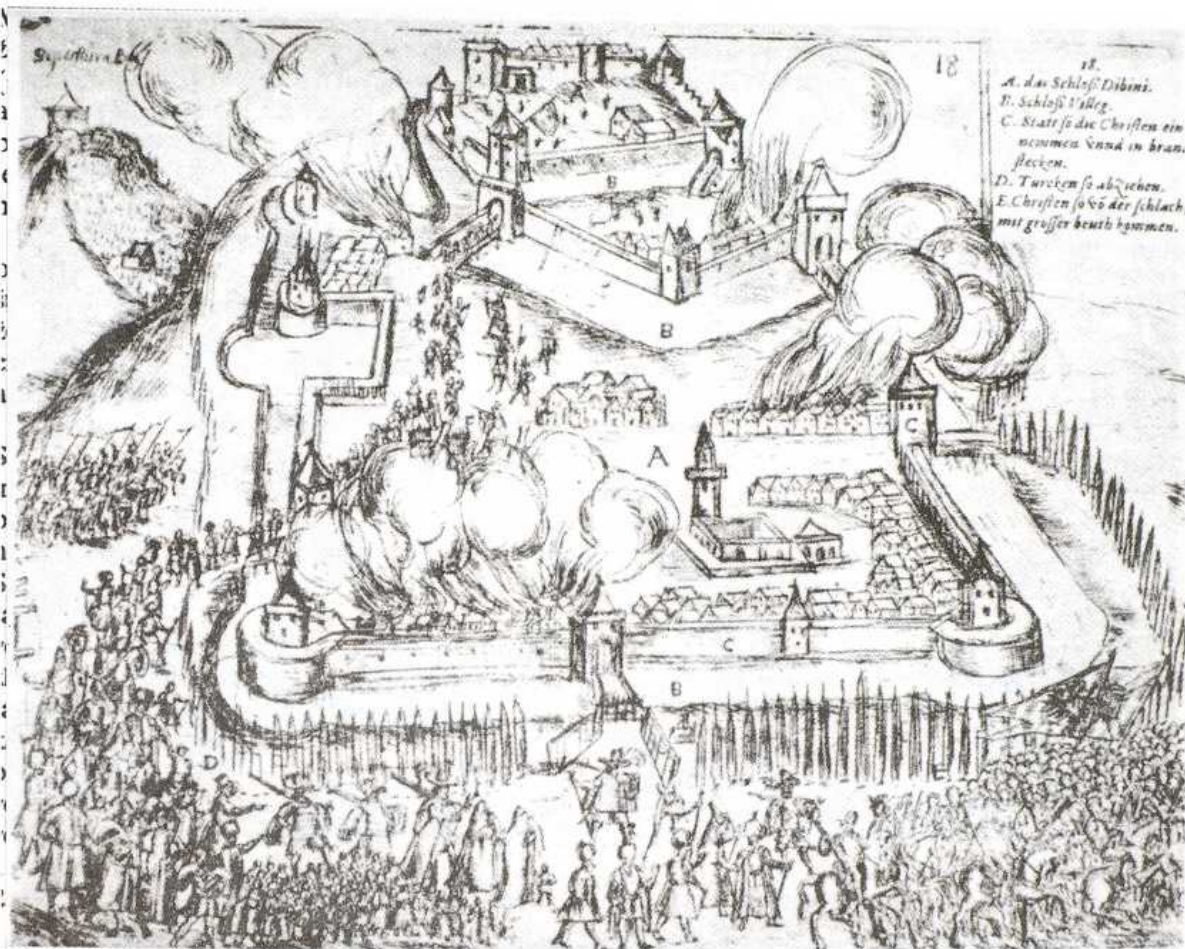 18
18.
A. das Schloß Dibini.
B. Schloß Villeg.
C. Statt so die Christen ein
nemmen vnnd in brand
stecken.
D. Turcken so abziehen.
E. Christen so vō der schlach
mit grosser beuth kommen.
B
B
C
A
C
B
D
E